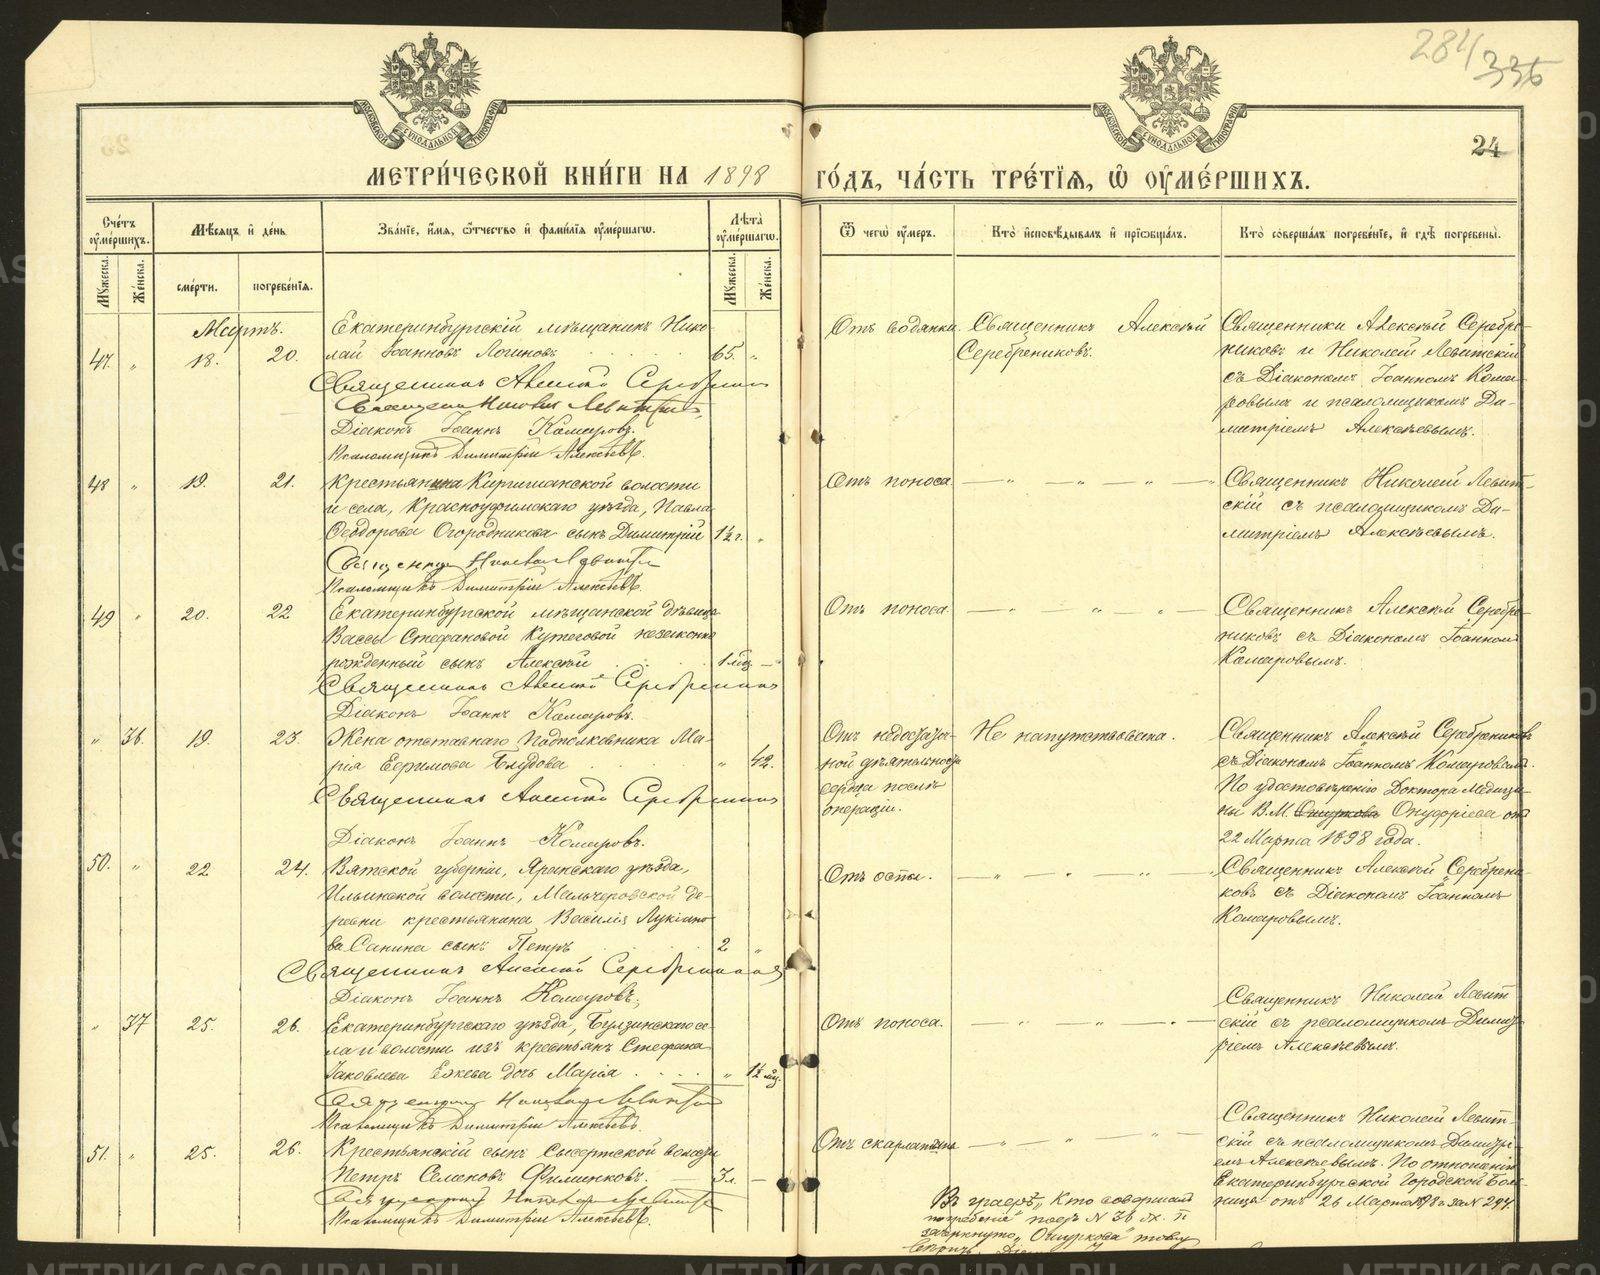 284
336
24
МЕТРИ́ЧЕСКОЙ КНИ́ГИ НА 1898 ГО́ДЪ, ЧА́СТЬ ТРЕ́ТІѦ, Ѿ ОУМЕ́РШИХЪ.
Сче́тъ оуме́ршихъ.
Мѣ́сѧцъ и де́нь
Зва́нїе, и́мѧ, ѻ҆́тчество и фамилїѧ оуме́ршагѡ.
Лѣ́та оуме́ршагѡ.
Ѿ чегѡ̀ оу́меръ.
Кто̀ исповѣ́дывалъ и прїѡбща́лъ.
Кто̀ соверша́лъ погребе́нїе, и гдѣ̀ погребены̀.
Мꙋ́жеска.
Же́нска.
сме́рти.
погребе́нїѧ.
Мꙋ́жеска.
Же́нска.
Мартъ.
47. „ 18. 20.
Екатеринбургскій мѣщанинъ Нико-
лай Іоанновъ Логиновъ 65. „
Священникъ Алексій Серебренников
Священникъ Николай Левитскій
Діаконъ Іоаннъ Комаровъ.
Псаломщикъ Димитрій Алексѣевъ.
Отъ водянки.
Священникъ Алексѣй
Серебрениковъ.
Священники Алексѣй Серебре-
никовъ и Николай Левитскій
съ Діакономъ Іоанномъ Кома-
ровымъ и псаломщикомъ Ди-
митріемъ Алексѣевымъ.
48 „ 19. 21.
Крестьянина Киргишанской волости
и села, Красноуфимскаго уѣзда, Павла
Ѳеодорова Огородникова сынъ Димитрій 1½ г. „
Священникъ Николай Левитскій
Псаломщикъ Димитрій Алексѣевъ.
Отъ поноса.
Священникъ Николай Левит-
скій съ псаломщикомъ Ди-
митріемъ Алексѣевымъ.
49 „ 20. 22
Екатеринбургской мѣщанской дѣвицы
Вассы Стефановой незаконно
рожденный сынъ Алексѣй 1 мѣс. „
Священникъ Алексій Серебренников
Діаконъ Іоаннъ Комаровъ.
Отъ поноса.
Священникъ Алексѣй Серебре-
никовъ съ Діакономъ Іоанномъ
Комаровымъ.
„ 36. 19. 23.
Жена отставнаго Подполковника Ма-
рія Ефимова „ 42.
Священникъ Алексій Серебренников
Діаконъ Іоаннъ Комаровъ.
Отъ недостаточ-
ной дѣятельности
сердца послѣ
операціи.
Не напутствована.
Священникъ Алексѣй Серебрениковъ
съ Діакономъ Іоанномъ Комаровымъ.
По удостовѣренію Доктора Медици-
ны В.М. Ошуркова Онуфріева отъ
22 Марта 1898 года.
50. „ 22 24.
Вятской губерніи, Яранскаго уѣзда,
Ильинской волости, де-
ревни крестьянина Василія Лукіано-
ва Санина сынъ Петръ 2 „
Священникъ Алексій Серебренников
Діаконъ Іоаннъ Комаровъ.
Отъ оспы.
Священникъ Алексѣй Серебрени-
ковъ съ Діакономъ Іоанномъ
Комаровымъ.
„ 37 25. 26.
Екатеринбургскаго уѣзда, Булзинскаго се-
ла и волости изъ крестьянъ Стефана
Іаковлева дочь Марія „ 1½ мѣс.
Священникъ Николай Левитскій
Псаломщикъ Димитрій Алексѣевъ.
Отъ поноса.
Священникъ Николай Левит-
скій съ псаломщикомъ Димит-
ріемъ Алексѣевымъ.
51. „ 25. 26.
Крестьянскій сынъ Сысертской волости
Петръ Семеновъ Филинковъ. 3 л. —
Священникъ Николай Левитскій
Псаломщикъ Димитрій Алексѣевъ.
Отъ скарлатины
Священникъ Николай Левит-
скій съ псаломщикомъ Димитрі-
емъ Алексѣевымъ. По отношенію
Екатеринбургской Городской Боль-
ницы отъ 26 Марта 1898 г. за № 294.
Въ графѣ „Кто совершалъ
погребеніе" подъ № 36
зачеркнуто „Ошуркова" тому